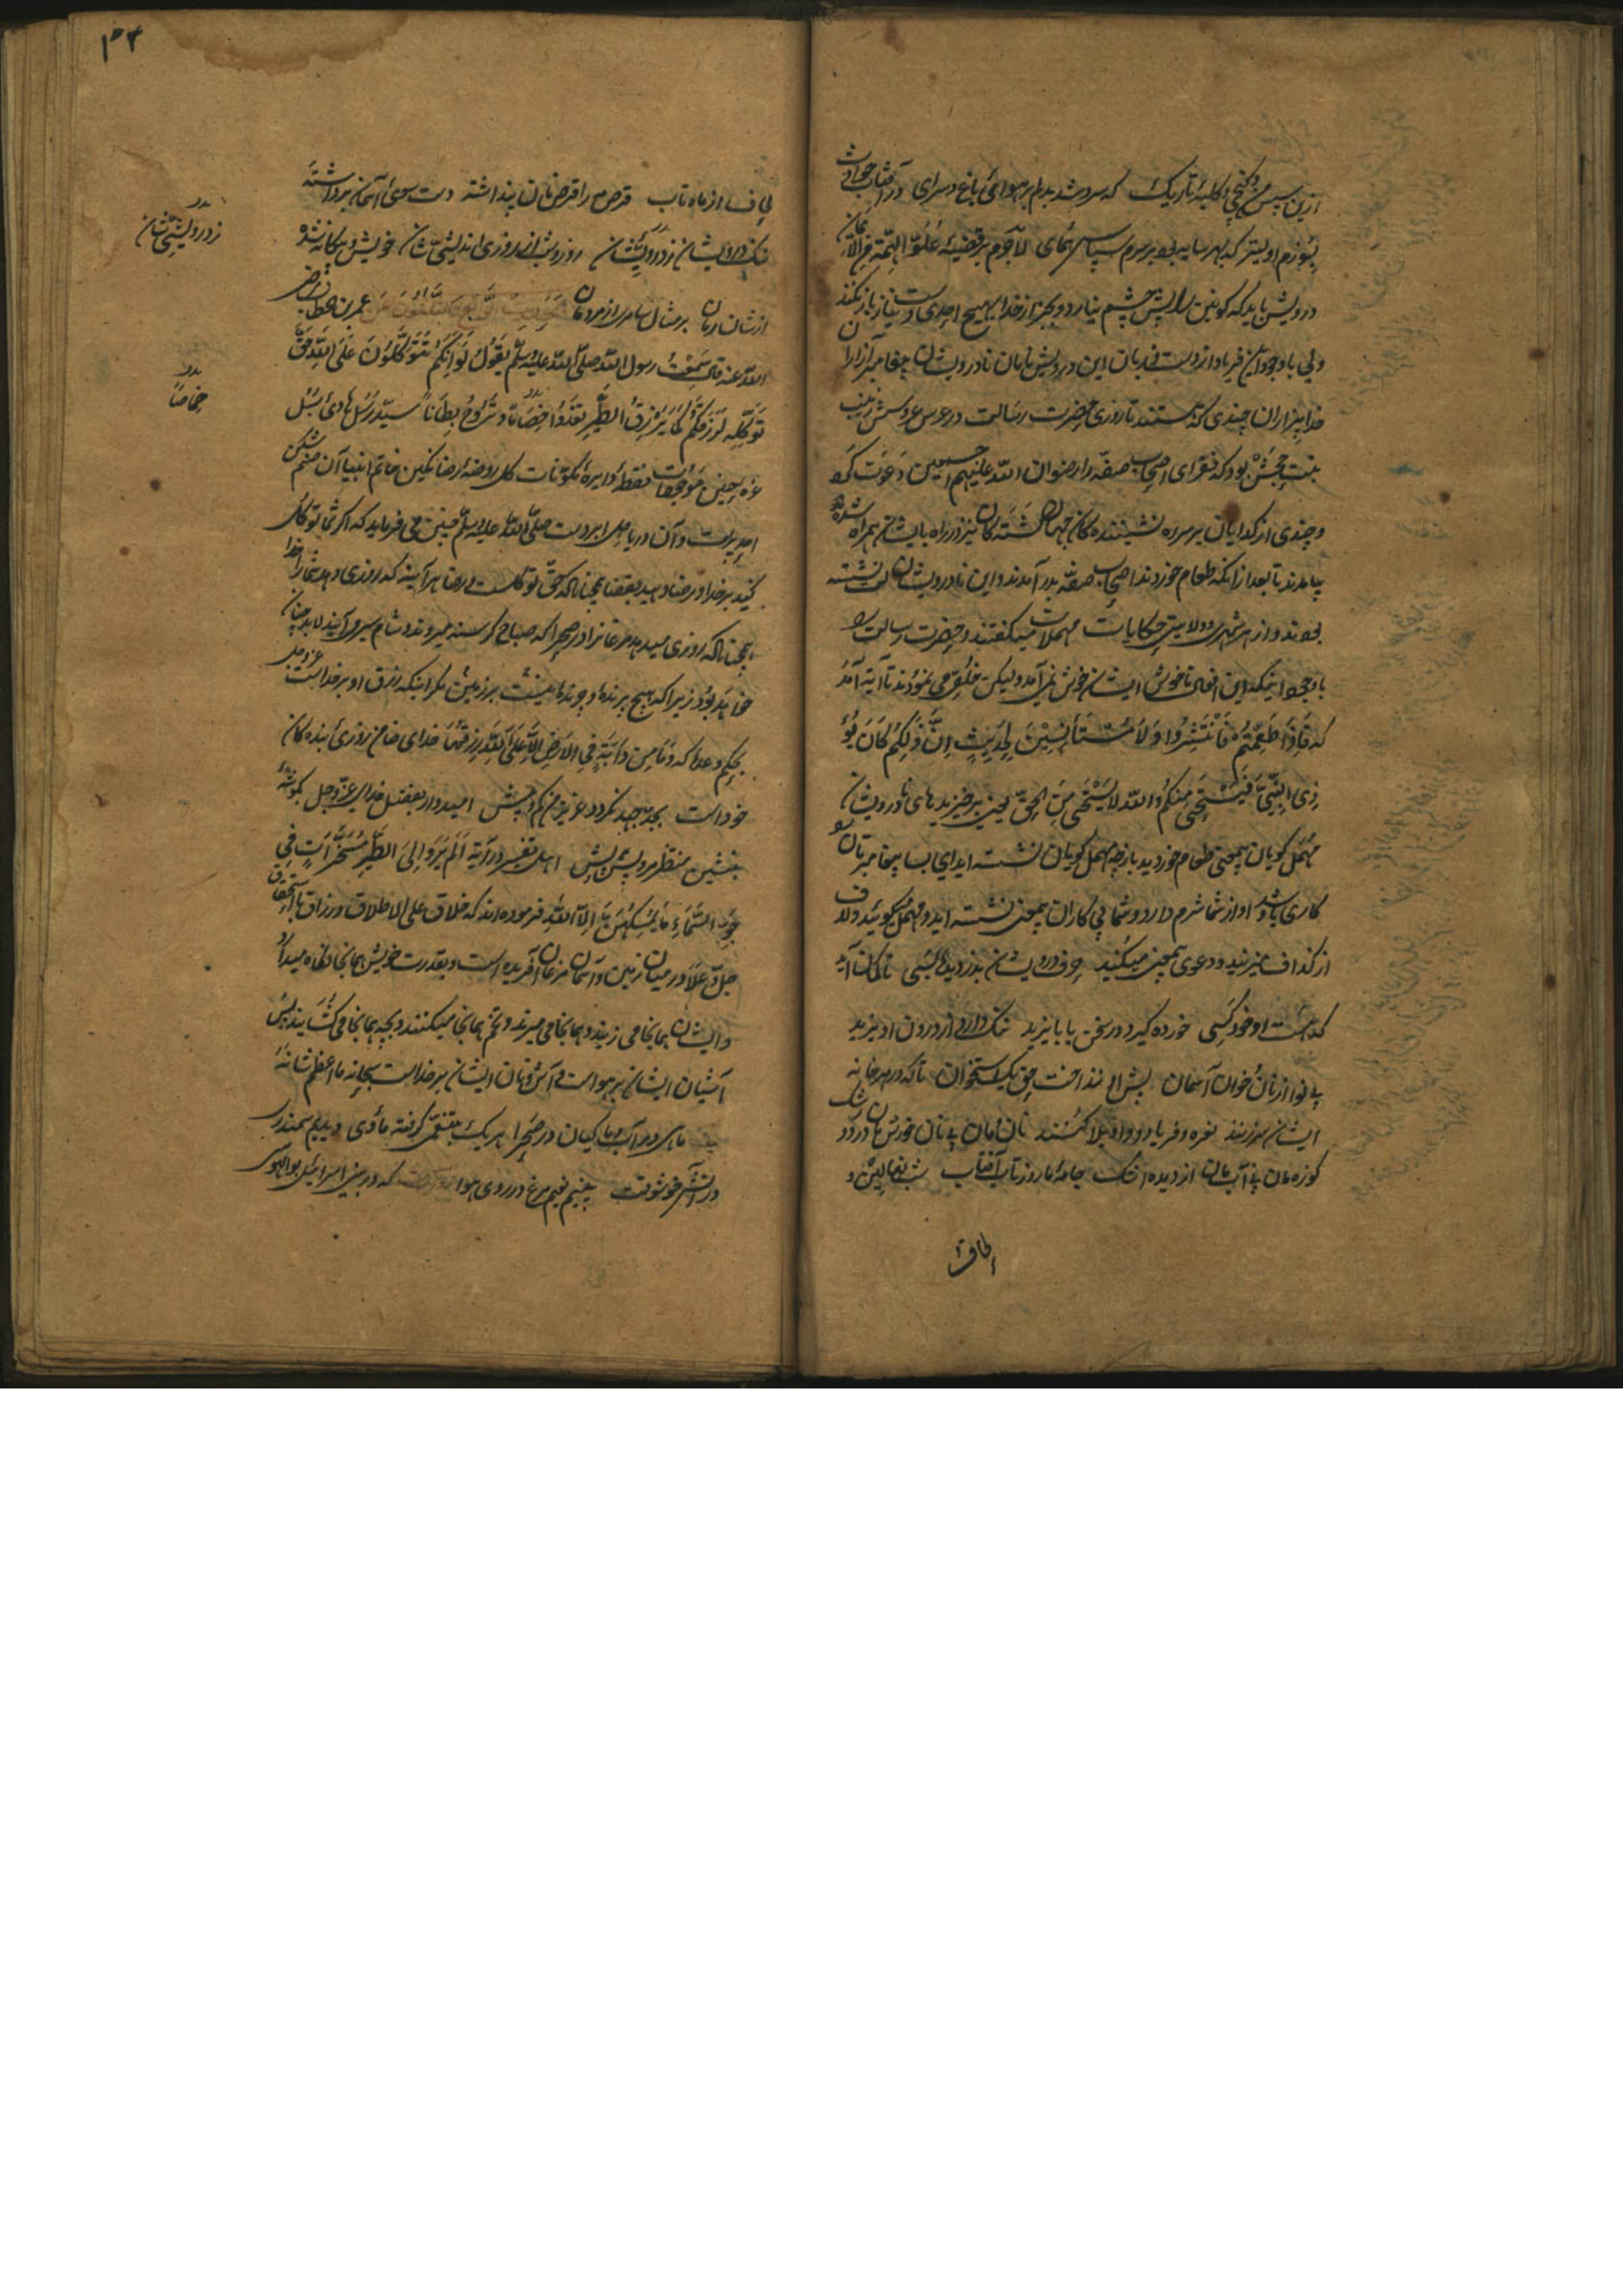 ازین پس من و کنجی و کلبهٔ تاریک که سرد شد بدلم بر هوائی باغ و سرای در آفتاب حوادث
بسوزم اولیتر که بهر سایه بود بر سرم سپاس همای لاجرم بر قضیهٔ علو الهمة من الایمان
درویش باید که کونین را پیش چشم نیارد و بجز از خدا بهیچ احدی دست نیاز باز نکند
ولی با وجود این فریاد از دست و زبان این درویش نامان نادرویشان پیغامبر آزار را
خدا بیزاران چندی که هستند تا روزی حضرت رسالت در عرس عروسش زینب
بنت جحش بود که فقرای اصحاب صفه را رضوان الله علیهم اجمعین دعوت کرد
و چندی از گدایان بر سر ره نشیننده کان جهان گشته کان نیز در راه بایشان همراه شده
بیامدند تا بعد از آنکه طعام خوردند اصحاب صفه بدر آمدند و این نادرویشان نشسته
بودند و از هر شهری و ولایتی حکایات مهملات میگفتند و حضرت رسالت را
با وجود اینکه این افعال ناخوش ایشان خوش نمی آمد ولیکن خلق می نمودند تا آیة آمد
که فَاِذَا طَعِمْتُمْ فَانْتَشِرُوا وَلَا مُسْتَأْنِسِیْنَ لِحَدِیْثٍ اِنَّ ذٰلِکُمْ کَانَ یُؤْ
ذِی النَّبِیَّ فَیَسْتَحْیِ مِنْکُمْ وَاللّٰه لَا یَسْتَحْیِ مِنَ الْحَقِّ یعنی برخیزید ای نادرویشان
مهمل گویان بیمعنی طعام خوردید باز چه مهمل گویان نشسته اید ای بسا پیغامبرتان را
کاری باشد و او از شما شرم دارد و شما بی کاران بیمعنی نشسته اید و مهمل گوئید و لاف
از گذاف میزنید و دعوی بیمعنی میکنید حرف درویشان بدزدیده بسی تا گمان آید
که هست او خود کسی خورده گیرد در سخن بر بایزید ننگ دارد از درون او یزید
بی نوا از نان و خوان آسمان پیش او ننداخت حق یک استخوان تا که در هر خانه
ایشان سر زنند نعره و فریاد و واویلا کنند نان مان بی نان خورش مان درد و رشک
کوزه مان بی آب مان از دیده اشک جامهٔ ما روز تاب آفتاب شب نهالین و
لحاف
لحاف از ماه تاب قرص مه را قرص نان پنداشته دست سوی آسمان برداشته
ننگ درویشان ز درویشیشان روز و شب از روزی اندیشیشان خویش و بیگانه شده
از شان رمان بر مثال سامری از مردمان عمر بن خطاب رضی
الله عنه قال سَمِعْتُ رسول الله صلی الله علیه وسلم یَقُولُ لَوْ اَنَّکُمْ تَتَوَکَّلُونَ عَلَی اللّٰهِ حَقَّ
تَوَکُّلِهِ لَرَزَقَکُمْ کَمَا یَرْزُقُ الطَّیْرَ تَغْدُوا خِمَاصًا وَتَرُوْحُ بِطَانًا سید رسل هادی سبل
غرهٔ جبین موجودات نقطهٔ دایرهٔ مکونات گل روضهٔ رضا نگین خاتم انبیا آن صنم شکن
و آن دریا دل ابر دست صلی الله علیه وسلم چنین می فرماید که اگر شما توکل
کنید بر خدا و رضا دهید بقضا همچناکه حق توکل است و رضا هر آینه که روزی دهد شما را خدا
همچناکه روزی میدهد مرغانرا در صحرا که صباح گرسنه میروند و شام سیر می آیند لابد چنان
خواهد بود زیرا که هیچ پرنده و چرنده نیست بر زمین مگر اینکه رزق او بر خداست عز و جل
بحکم وعدها که وَمَا مِنْ دَابَّةٍ فِی الْاَرْضِ اِلَّا عَلَی اللّٰهِ رِزْقُهَا خدای ضامن روزی بنده کان
خود است بجد و جهد نگردد عزیز من کم و بیش امیدوار بفضل خدای عز و جل بگوشهٔ
بنشین اهل تفسیر در آیة اَلَمْ یَرَوْا اِلَی الطَّیْرِ مُسَخَّرَاتٍ فِی
جَوِّ السَّمَاءِ مَا یُمْسِکُهُنَّ اِلَّا اللّٰهُ فرموده اند که خلاق علی الاطلاق و رزاق بااستحقاق
جل و علا در میان زمین و آسمان مرغان آفریده است و بقدرت خویش همانجا نگاه میدارد
و ایشان همانجا می زیند و همانجا می میرند و تخم همانجا میکنند و بچه همانجا می کشایند پس
آشیان ایشان بر هواست و آش و نان ایشان بر خداست سبحانه ما اعظم شانه
ماهی در آب و ماکیان در صحرا هر یک بتنعمی گرفته مأوی و دیدیم سمندر
در آتش خوشوقت بینیم مرغ در روی هوا که در بنی اسرائیل بوالهوسی
ز درویشیشان
خماصًا